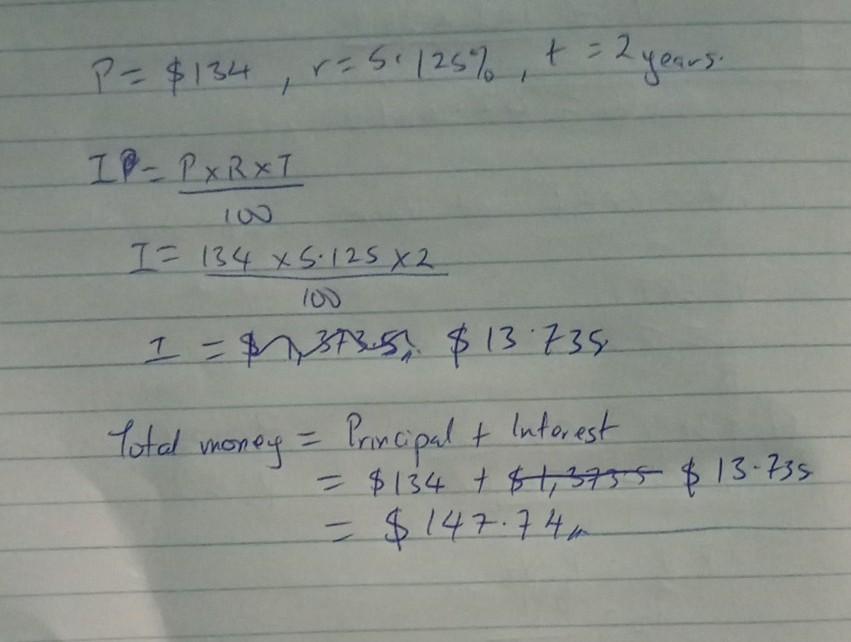 P = $134 , r = 5.125% , t = 2 years.
I = P x R x T
100
I = 134 x 5.125 x 2
100
I = $1,373.5 $13.735
Total money = Principal + Interest
= $134 + $1,373.5 $13.735
= $147.74